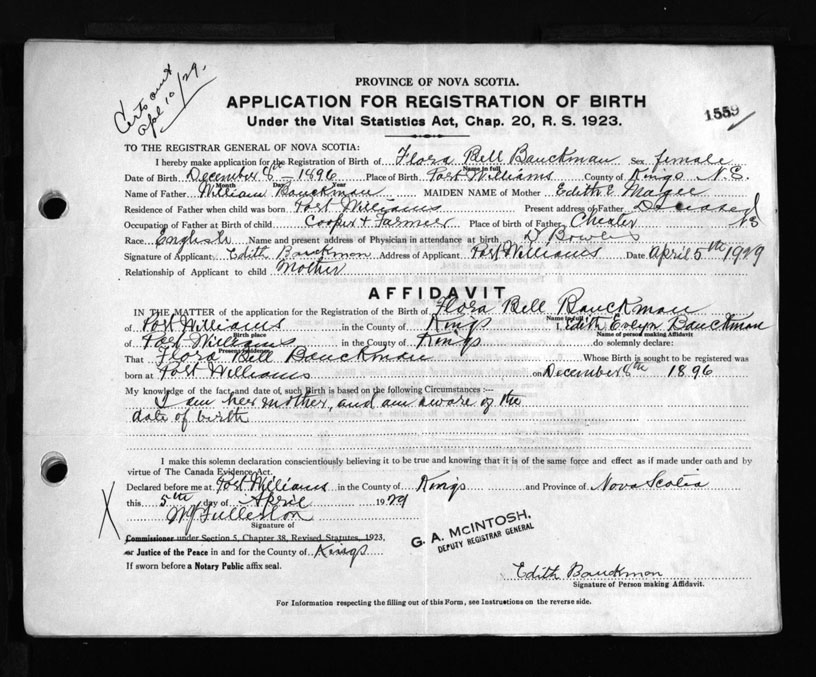 Certs sent
Apl 10/29.
PROVINCE OF NOVA SCOTIA.
APPLICATION FOR REGISTRATION OF BIRTH
1559
Under the Vital Statistics Act, Chap. 20, R. S. 1923.
TO THE REGISTRAR GENERAL OF NOVA SCOTIA:
I hereby make application for the Registration of Birth of Flora Bell Bauckman Sex female
Name in full
Date of Birth December 8th - 1896 Place of Birth Port Williams County of Kings N.S.
Month Day Year
Name of Father William Bauckman MAIDEN NAME of Mother Edith E Magee
Residence of Father when child was born Port Williams Present address of Father Deceased
Occupation of Father at Birth of child Cooper & Farmer Place of birth of Father Chester NS
Race English Name and present address of Physician in attendance at birth Dr Bowles
Signature of Applicant Edith Bauckman Address of Applicant Port Williams Date April 5th 1929
Relationship of Applicant to child Mother
AFFIDAVIT
IN THE MATTER of the application for the Registration of the Birth of Flora Bell Bauckman
Name in full
of Port Williams in the County of Kings I, Edith Evelyn Bauckman
Birth place Name of person making Affidavit
of Port Williams in the County of Kings do solemnly declare:
Present residence
That Flora Bell Bauckman Whose Birth is sought to be registered was
born at Port Williams on December 8th 1896
My knowledge of the fact and date of, such Birth is based on the following Circumstances :—
I am her mother, and am aware of the
date of birth
I make this solemn declaration conscientiously believing it to be true and knowing that it is of the same force and effect as if made under oath and by
virtue of The Canada Evidence Act.
Declared before me at Port Williams in the County of Kings and Province of Nova Scotia
this 5th day of April 1929
X Fullerton
Signature of
Commissioner under Section 5, Chapter 38, Revised Statutes, 1923,
or Justice of the Peace in and for the County of Kings
If sworn before a Notary Public affix seal.
G. A. McINTOSH.
DEPUTY REGISTRAR GENERAL
Edith Bauckman
Signature of Person making Affidavit.
For Information respecting the filling out of this Form, see Instructions on the reverse side.